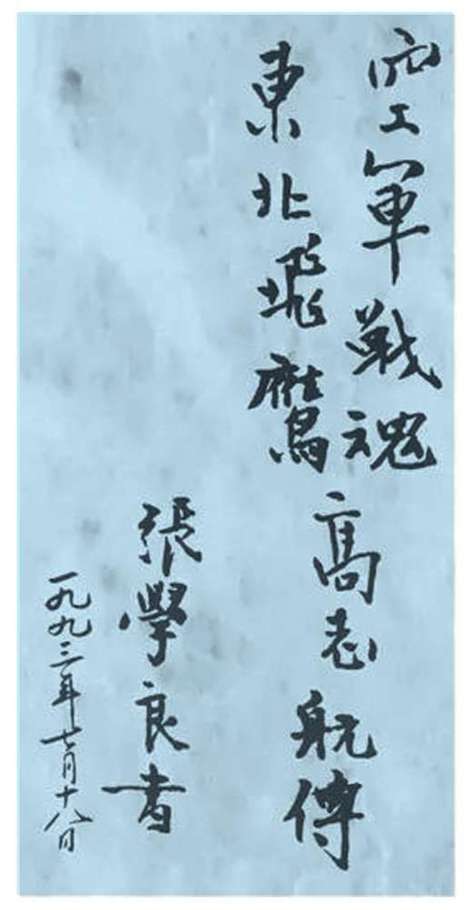 空军戰魂
東北飛鷹
高志航傳
張學良書
一九九三年七月十八日